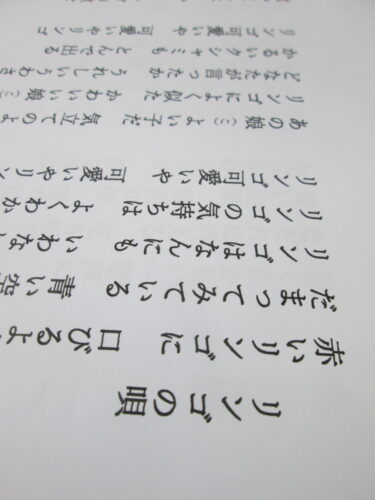 リンゴの唄
赤いリンゴに　口びるよ
だまってみている　青い空
リンゴはなんにも　いわな
リンゴの気持ちは　よくわか
リンゴ可愛いや　可愛いやリン
あの娘(こ)よい子だ　気立てのよ
リンゴによく似た　かわいい娘(こ)
どなたが言ったか　うれしいうわさ
かるいクシャミも　とんで出る
リンゴ可愛いや　可愛いやリンゴ